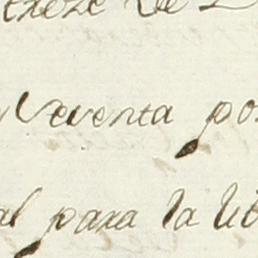 treze de
Noventa po
al para la lib